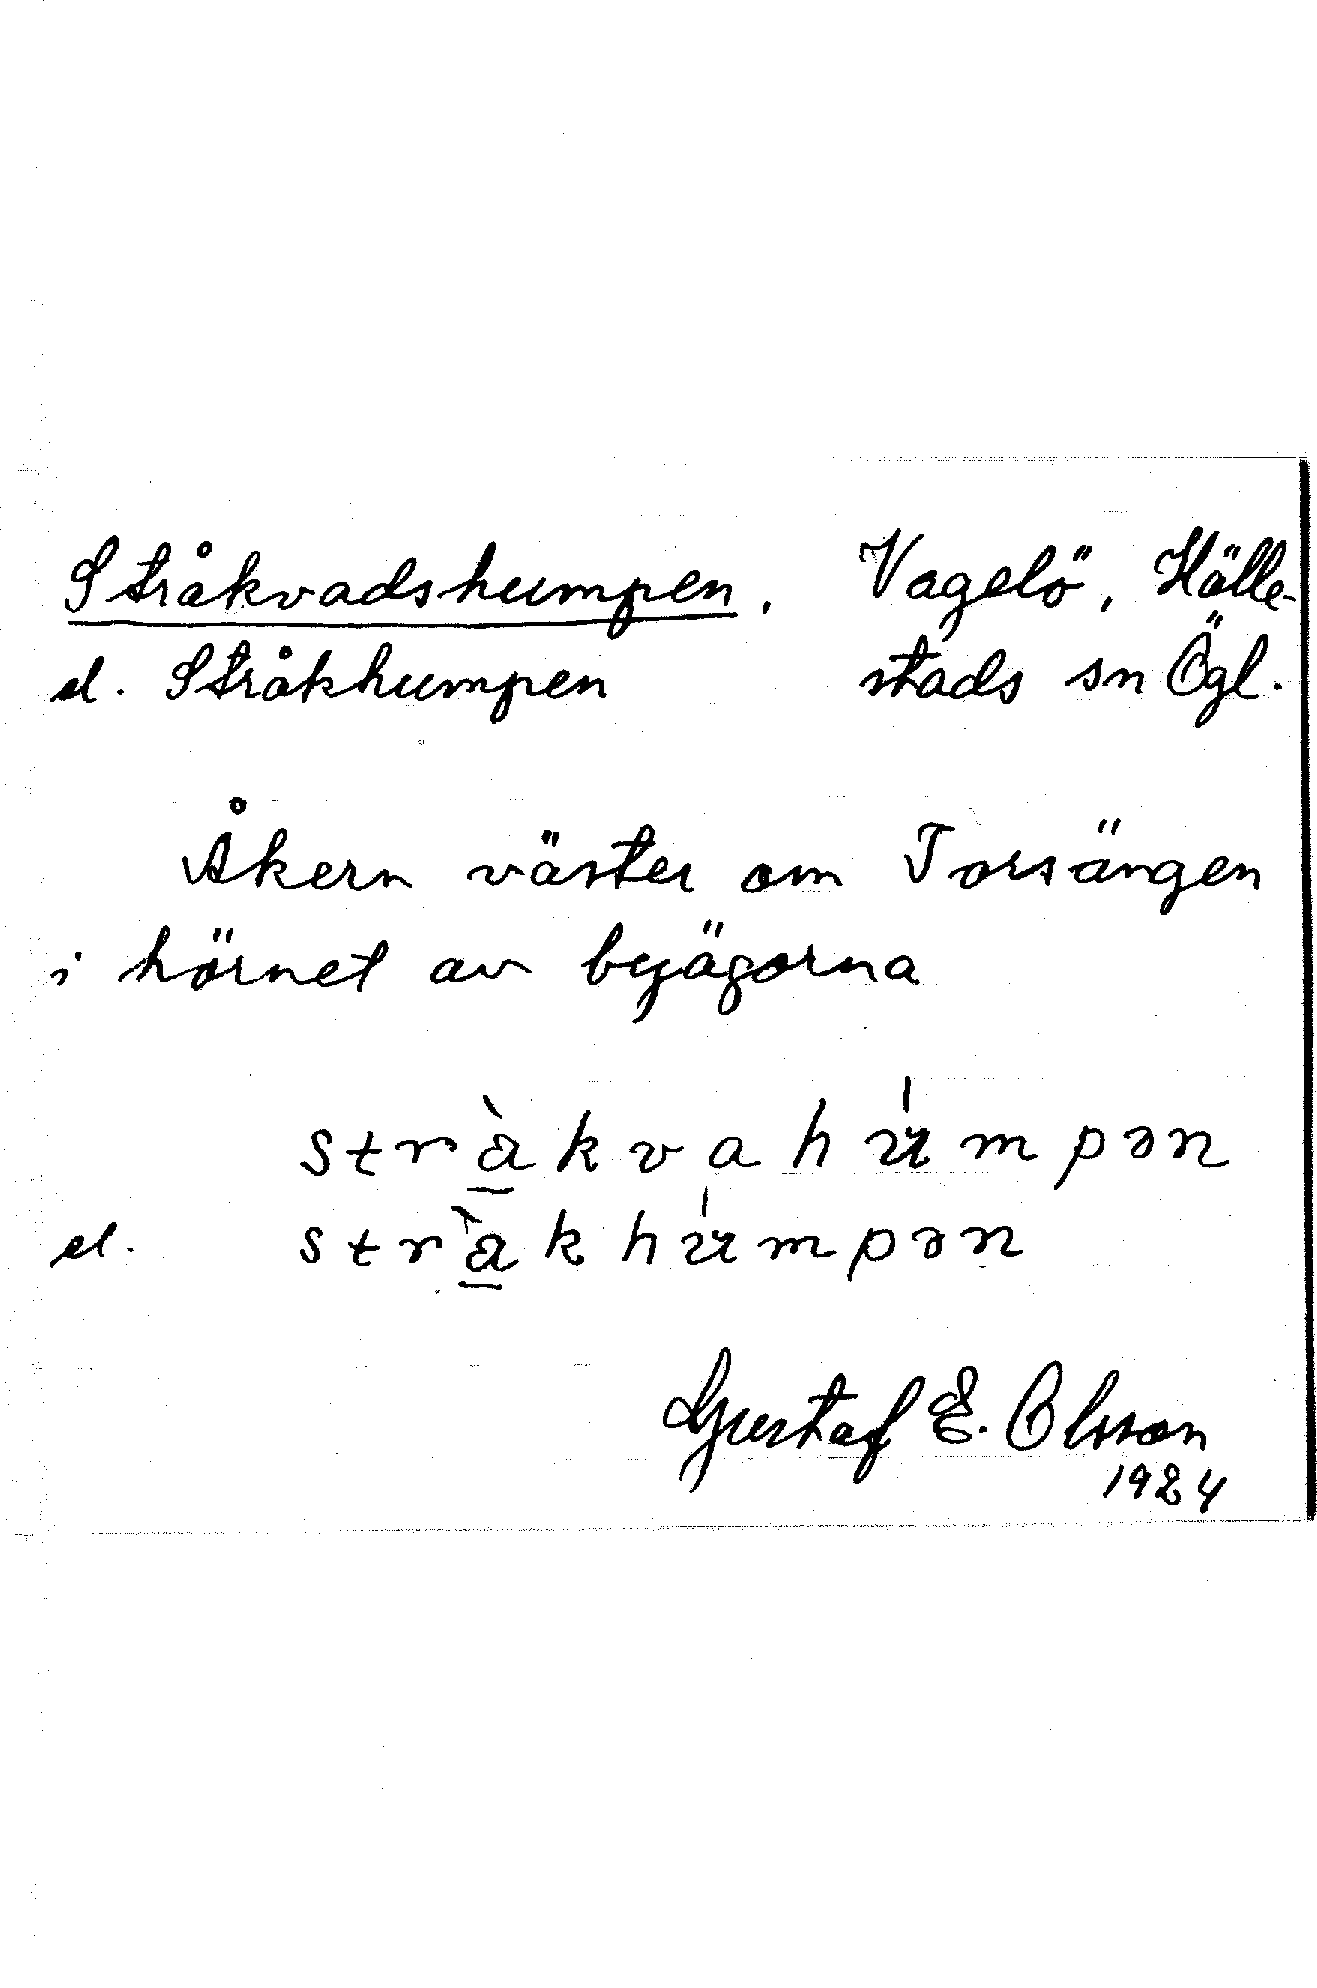 Stråkvadshumpen. Vagelö, Hälle-
el. Stråkhumpen stads sn Ögl.
Åkern väster om Torsängen
i hörnet av byägorna
strà̠kvahúmpən
el. strà̠khúmpən
Gustaf E. Olsson
1924